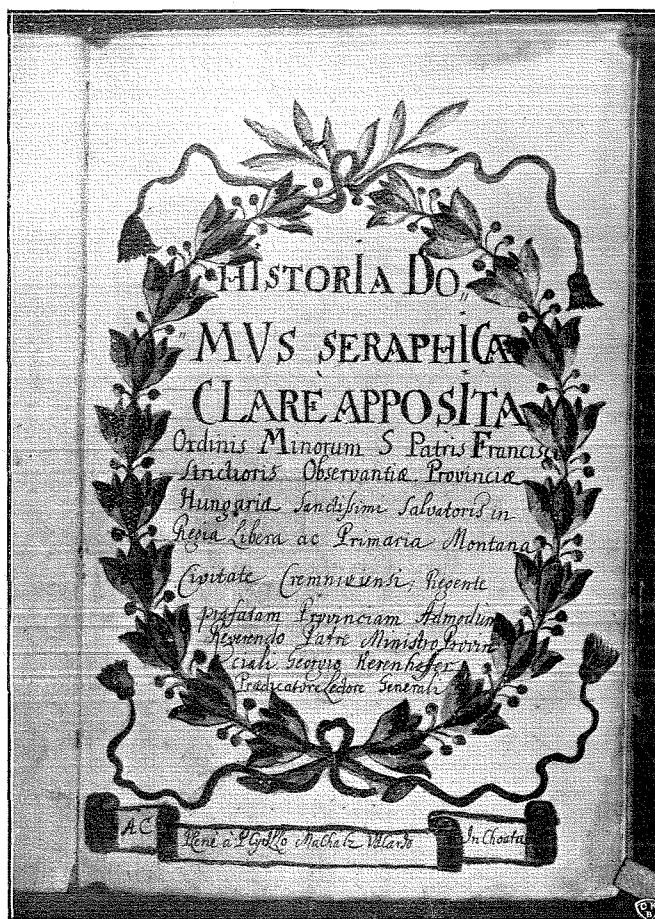 HISTORIA DO„
„MVS SERAPHICÆ
CLARÈ APPOSITA
Ordinis Minorum S Patris Francisci
Strictioris Observantiæ Provinciæ
Hungariæ Sanctissimi Salvatoris in
Regia Libera ac Primaria Montana
Civitate Cremniciensi, Regente
præfatam Provinciam Admodum
Reverendo Patre Ministro Provin
ciali Georgio Kerenhoffer
Prædicatore Lectore Generali
AC
Plenè à P Cyrillo
In Choata